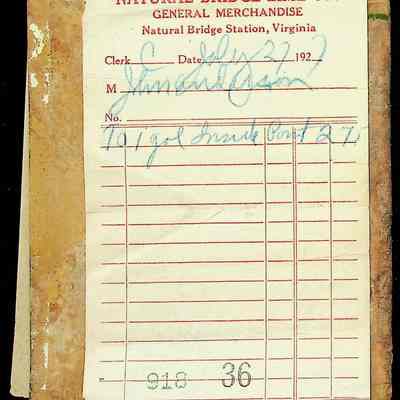 NATURAL BRIDGE LIME CO.
GENERAL MERCHANDISE
Natural Bridge Station, Virginia
Clerk C Date July 27 1927
M
No.
To 1 gal Inside Paint 2 75
918 36